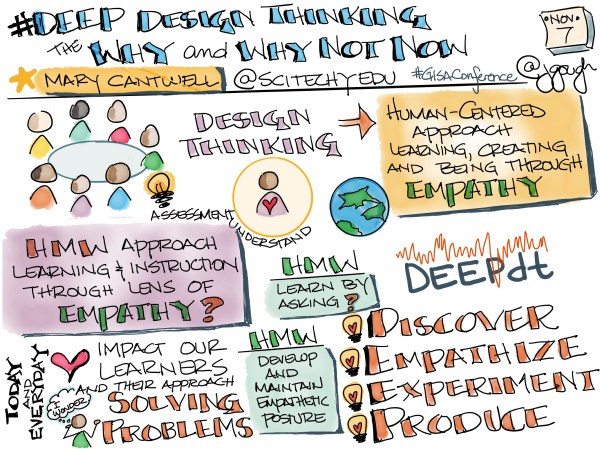 #DEEP DESIGN THINKING
THE WHY and WHY NOT NOW
NOV
7
MARY CANTWELL @SCITECHYEDU #GISAConference @jgough
DESIGN
THINKING
HUMAN-CENTERED
APPROACH
LEARNING, CREATING
AND BEING THROUGH
EMPATHY
ASSESSMENT
UNDERSTAND
HMW APPROACH
LEARNING & INSTRUCTION
THROUGH LENS OF
EMPATHY?
HMW
LEARN BY
ASKING?
DEEPdt
TODAY
AND
EVERYDAY
IMPACT OUR
LEARNERS
AND THEIR APPROACH
SOLVING
PROBLEMS
I WONDER
HMW
DEVELOP
AND
MAINTAIN
EMPATHETIC
POSTURE
DISCOVER
EMPATHIZE
EXPERIMENT
PRODUCE